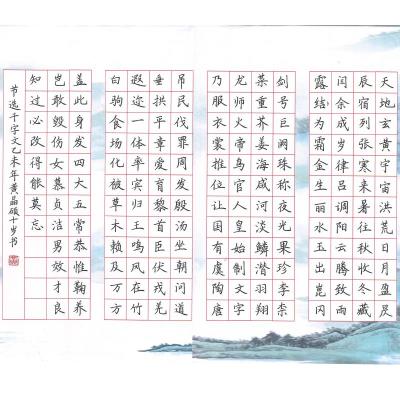 天地玄黄宇宙洪荒日月盈昃
辰宿列张寒来暑往秋收冬藏
闰余成岁律吕调阳云腾致雨
露结为霜金生丽水玉出崑冈
剑号巨阙珠称夜光果珍李柰
菜重芥姜海咸河淡鳞潜羽翔
龙师火帝鸟官人皇始制文字
乃服衣裳推位让国有虞陶唐
吊民伐罪周发殷汤坐朝问道
垂拱平章爱育黎首臣伏戎羌
遐迩一体率宾归王鸣凤在竹
白驹食场化被草木赖及万方
盖此身发四大五常恭惟鞠养
岂敢毁伤女慕贞洁男效才良
知过必改得能莫忘
节选千字文乙未年黄晶硕十岁书